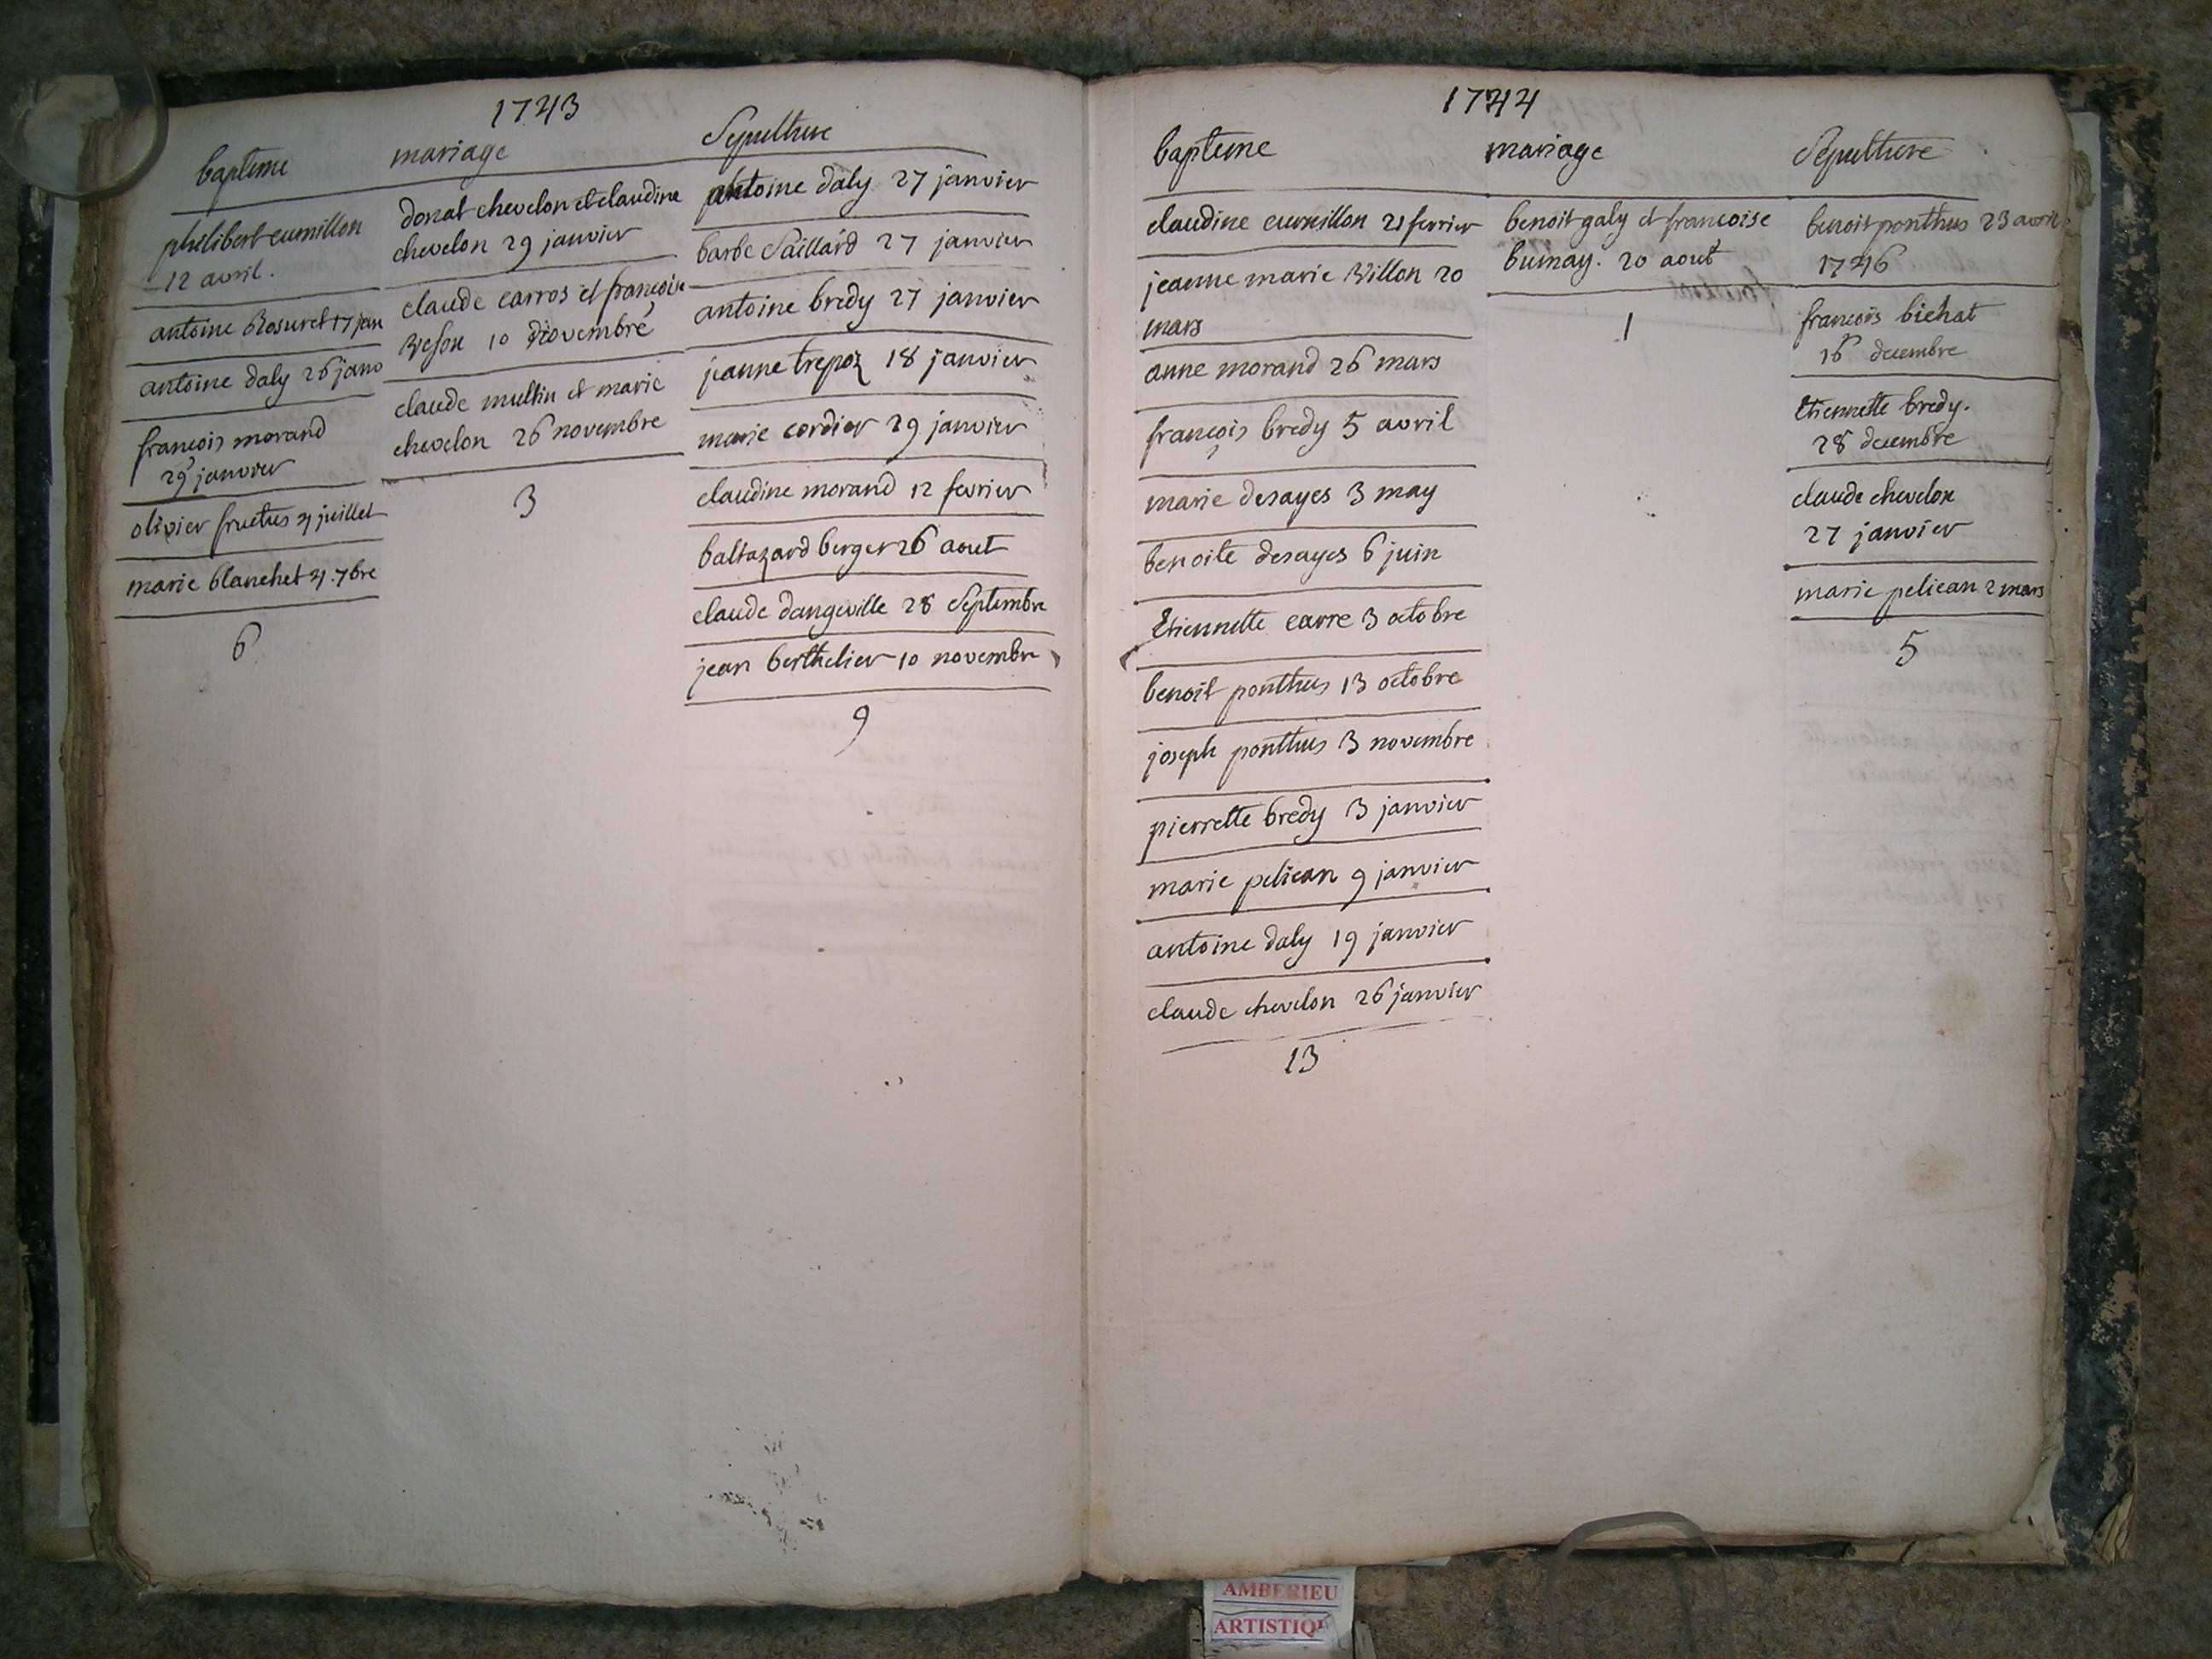 1743
bapteme
philibert cumillon
12 avril.
antoine Rosuret 17 jan
antoine daly 26 janv
francois morand
29 janvier
olivier fructus 21 juillet
marie blanchet 21. 7bre
6
mariage
donat chevelon et claudine
chevelon 29 janvier
claude carros et francoise
10 novembre
claude multin et marie
chevelon 26 novembre
3
Sepulture
antoine daly 27 janvier
barbe Saillard 27 janvier
antoine bredy 27 janvier
jeanne trepoz 18 janvier
marie cordier 29 janvier
claudine morand 12 fevrier
baltazard berger 26 aout
claude dangeville 28 Septembre
jean berthelier 10 novembre
9
1744
bapteme
claudine curnillon 21 fevrier
jeanne marie Billon 20
mars
anne morand 26 mars
françois bredy 5 avril
marie desayes 3 may
benoite desayes 6 juin
Etiennette carre 3 octobre
benoit ponthus 13 octobre
joseph ponthus 3 novembre
pierrette bredy 3 janvier
marie pelican 9 janvier
antoine daly 19 janvier
claude chevelon 26 janvier
13
mariage
benoit galy et francoise
20 aout
1
Sépulture
benoit ponthus 23 avril
1746
francois bichat
16 decembre
Etiennette bredy.
28 decembre
claude chevelon
27 janvier
marie pelican 2 mars
5
AMBERIEU
ARTISTIQ